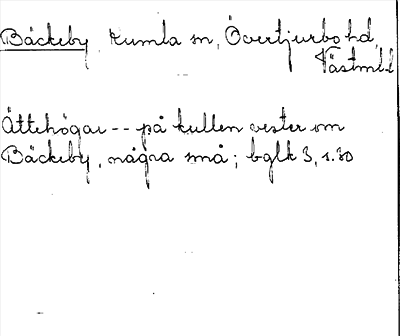 Bäckeby, Kumla sn, Övertjurbo hd,
Västml.
Ättehögar -- på kullen vester om
Bäckeby, några små; bglk 3, s. 30